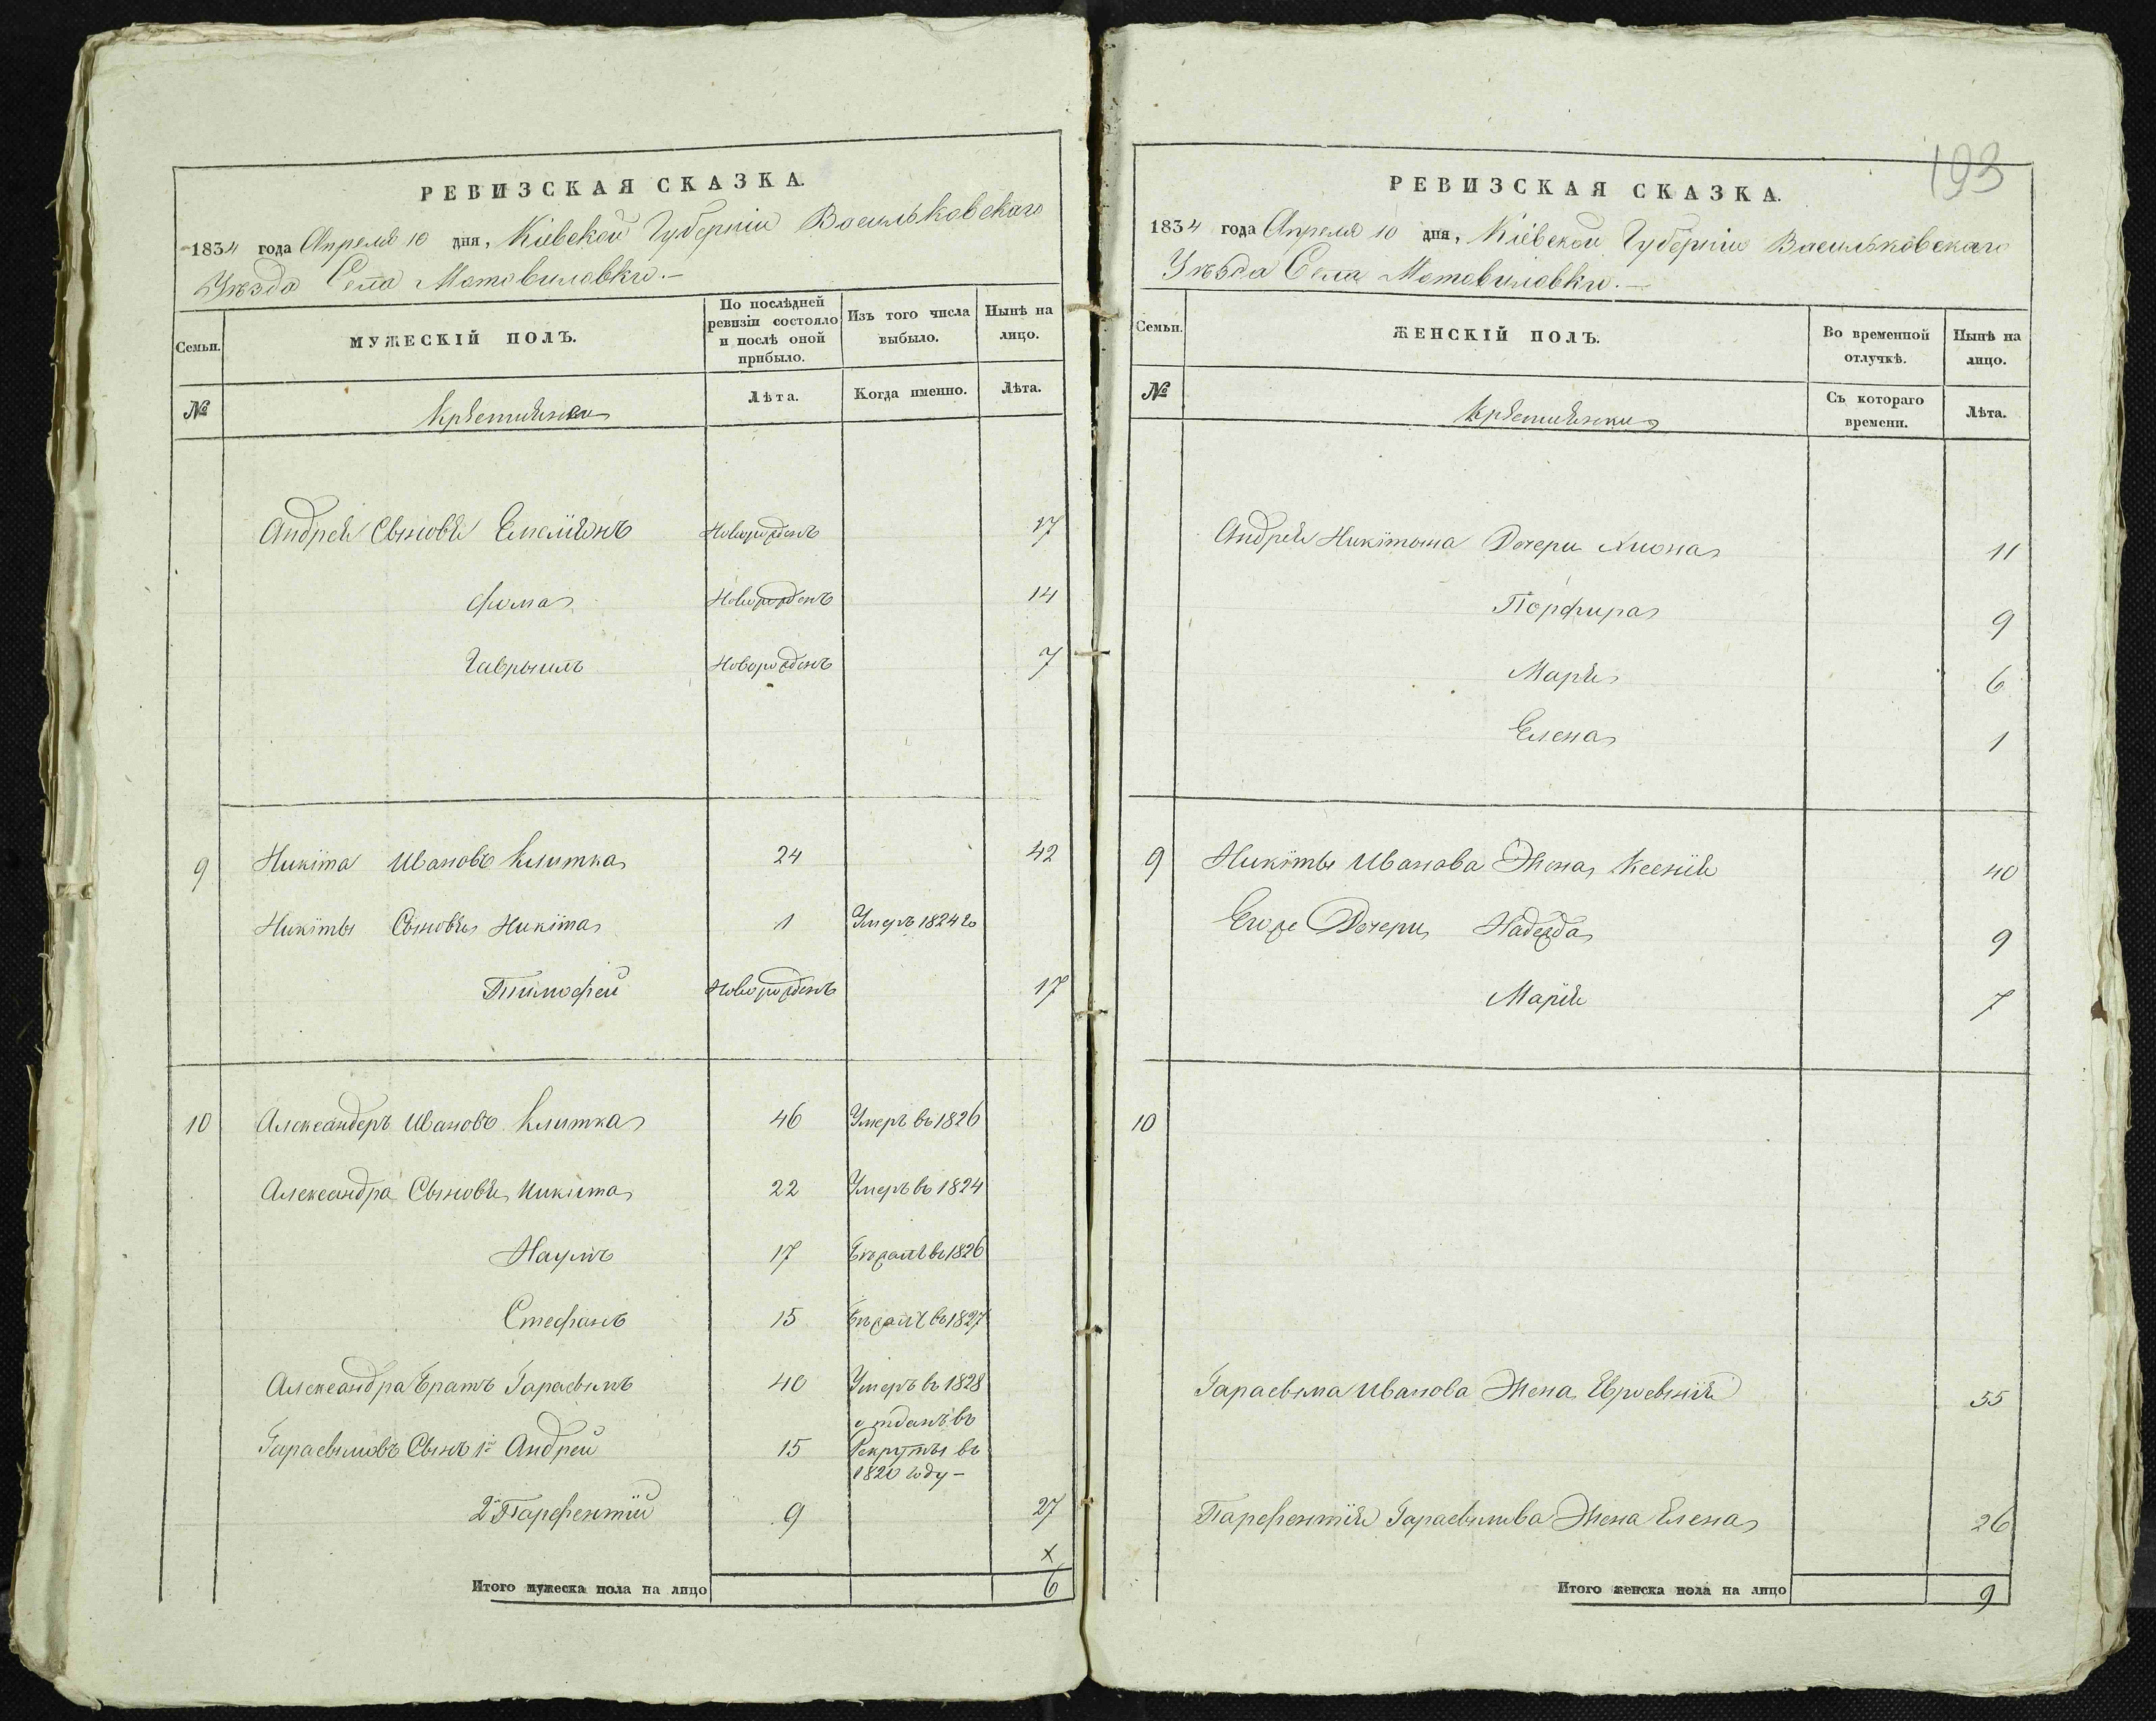 РЕВИЗСКАЯ СКАЗКА.
1834 года Апреля 10 дня, Кіевской Губерніи Васильковскаго
Уѣзда Села Мотовиловки.—
Семьи.
МУЖЕСКІЙ ПОЛЪ.
По послѣдней ревизіи состояло и послѣ оной прибыло.
Изъ того числа выбыло.
Нынѣ на лицо.
№
Крѣстьяне
Лѣта.
Когда именно.
Лѣта.
Андрея Сыновья Емелиянъ Новорожденъ 17
Фома Новорожденъ 14
Гаврыилъ Новорожденъ 7
9 Никита Ивановъ Клитка 24 42
Никиты Сыновья Никита 1 Умеръ 1824 го
Тимофей Новорожденъ 17
10 Александеръ Ивановъ Клитка 46 Умеръ въ 1826
Александра Сыновья Никита 22 Умеръ въ 1824
Наумъ 17 въ 1826
Стефанъ 15 въ 1827
Александра Братъ Гарасымъ 40 Умеръ въ 1828
Гарасымовъ Сынъ 1й Андрей 15 отданъ въ Рекруты въ 1820 году —
2й Парфентий 9 27
х
Итого мужеска пола на лицо 6
193
РЕВИЗСКАЯ СКАЗКА.
1834 года Апреля 10 дня, Кіевской Губерніи Васильковскаго
Уѣзда Села Мотовиловки.—
Семьи.
ЖЕНСКІЙ ПОЛЪ.
Во временной отлучкѣ.
Нынѣ на лицо.
№
Крѣстьянки
Съ котораго времени.
Лѣта.
Андрея Никитына Дочери Хиона 11
Порфира 9
Марія 6
Елена 1
9 Никиты Иванова Жена Ксенія 40
Егоже Дочери Надежда 9
Марія 7
10
Гарасыма Иванова Жена Евросынія 55
Парфентія Гарасымова Жена Елена 26
Итого женска пола на лицо 9